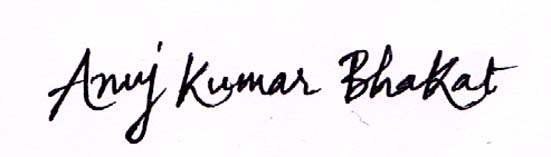 Anuj Kumar Bhakat